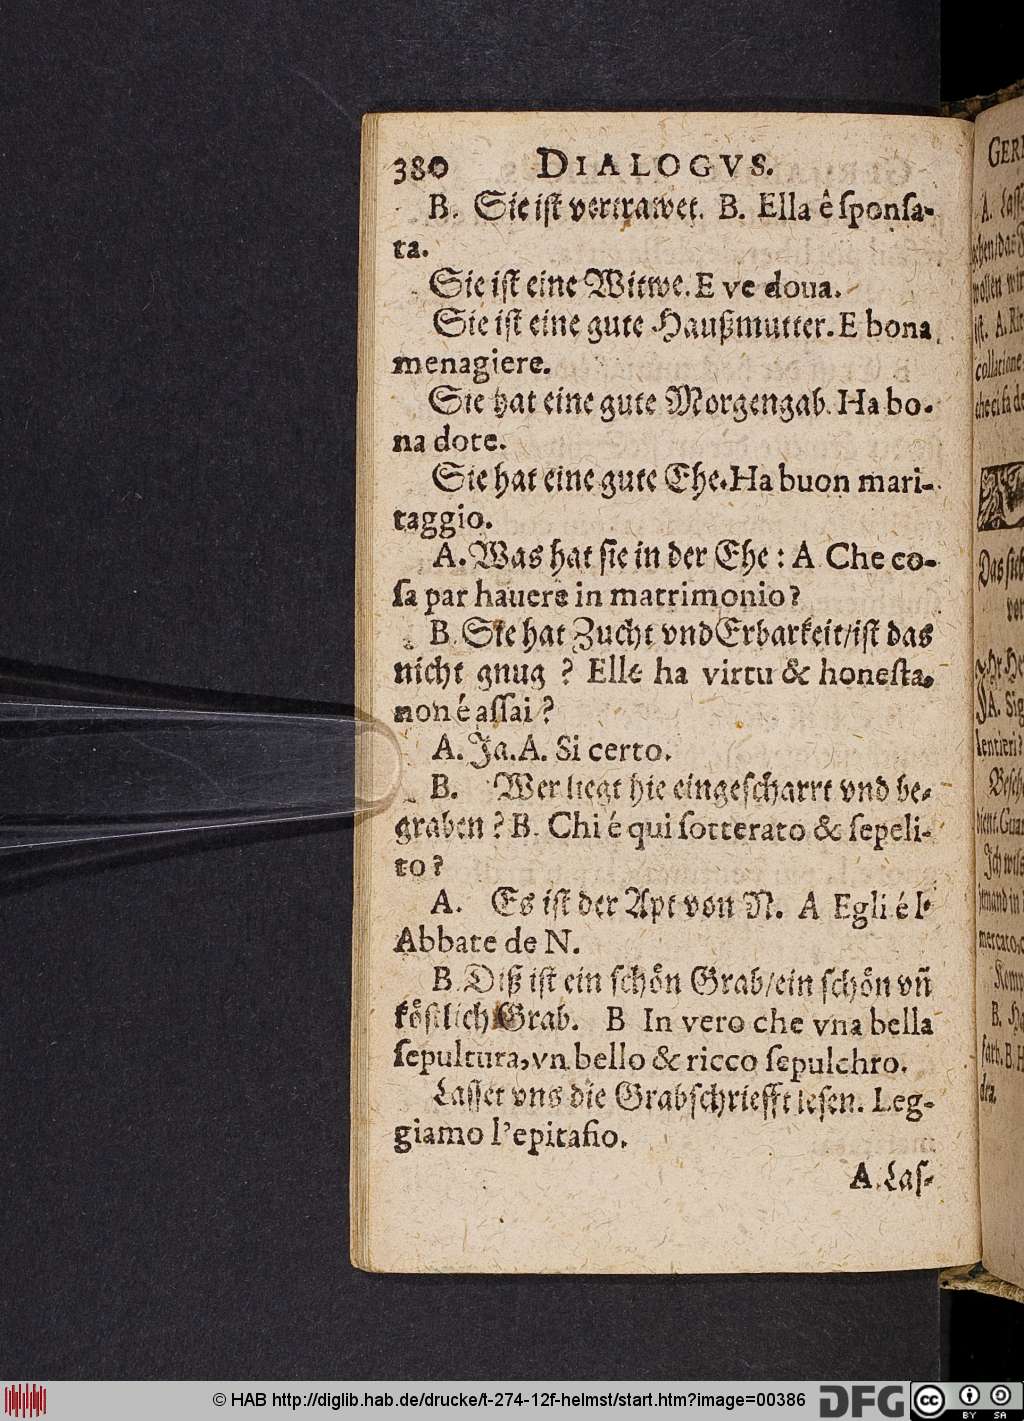 380 DIALOGVS.
B. Sie ist vertrawet. B. Ella ê ſponſa-
ta.
Sie ist eine Witwe. E ve doua.
Sie ist eine gute Haußmutter. E bona
menagiere.
Sie hat eine gute Morgengab. Ha bo-
na dote.
Sie hat eine gute Ehe. Ha buon mari-
taggio.
A. Was hat sie in der Ehe: A Che co-
ſa par hauere in matrimonio?
B. Sie hat Zucht vnd Erbarkeit/ist das
nicht gnug? Elle ha virtu & honesta,
non é aſſai?
A. Ja. A. Si certo.
B. Wer liegt hie eingescharrt vnd be-
graben? B. Chi é qui ſotterato & ſepeli-
to?
A. Es ist der Apt von N. A Egli é l'
Abbate de N.
B. Diß ist ein ſchoͤn Grab/ein ſchoͤn vñ
koͤstlich Grab. B In vero che vna bella
ſepultura, vn bello & ricco ſepulchro.
Laſſet vns die Grabſchriefft leſen. Leg-
giamo l'epitafio.
A. Laſ-
GER
A. Laſſ
wollen wir
iſt. A.
collatione
che ci ſa de
Das ſieb
ver
A. Sig
lentieri?
Beſch
dient. Gua
Ich
mercato,
B.
B. H
© HAB http://diglib.hab.de/drucke/t-274-12f-helmst/start.htm?image=00386
DFG
cc
BY SA